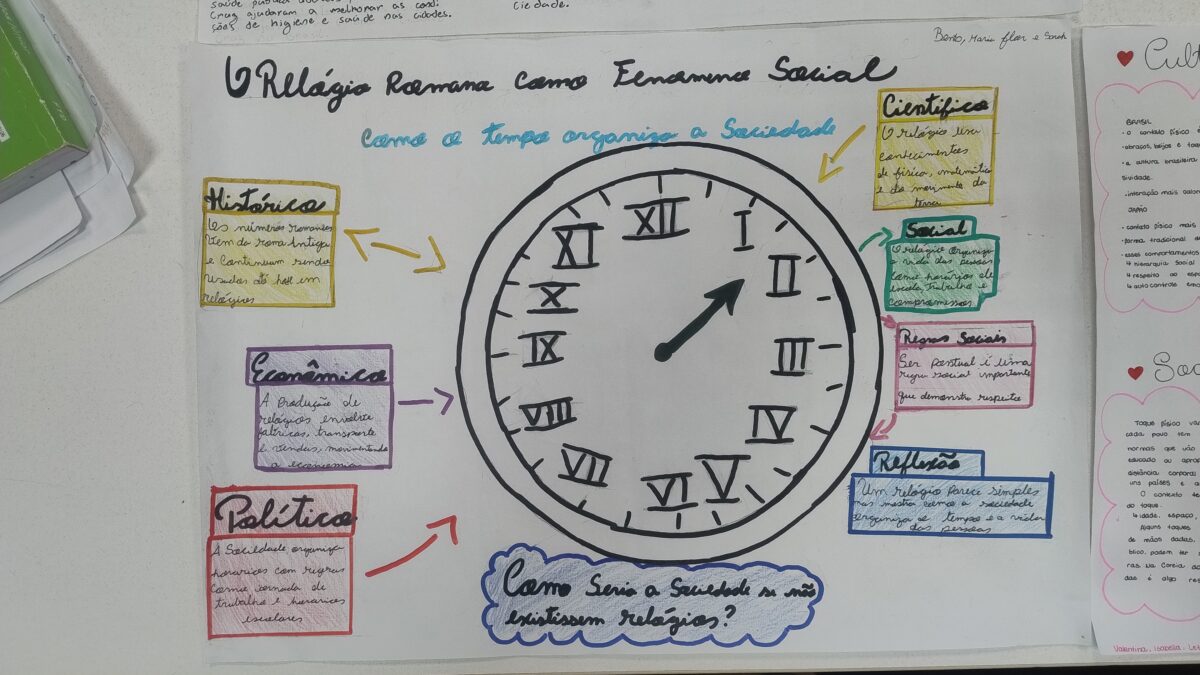 saúde pública
Cruz ajudaram a melhorar as condi
ções de higiene e saúde nas cidades.
ciedade.
Bento, Maria flor e Sarah
O Relógio Romano como Fenômeno Social
Como o tempo organiza a Sociedade
Histórico
Os números romanos
vem da roma Antiga
e continuam sendo
usados até hoje em
relógios
Econômico
A Produção de
relógios envolve
fábricas, transporte
e vendas, movimentando
a economia
Político
A Sociedade organiza
horarios com regras
como jornada de
trabalho e horarios
escolares
XII
I
II
III
IV
V
VI
VII
VIII
IX
X
XI
Científico
O relógio usa
conhecimentos
de física, matemática
e do movimento da
terra
Social
O relógio organiza
a vida das pessoas
como horários de
escola, trabalho e
compromissos
Regras Sociais
Ser pontual é uma
regra social importante
que demonstra respeito
Reflexão
Um relógio parece simples
mas mostra como a sociedade
organiza o tempo e a vida
das pessoas
Como Seria a Sociedade se não
existissem relógios?
Cult
BRASIL
• o contato físico
• abraços, beijos e
• a cultura brasileira
sividade.
• interação mais
JAPÃO
• contato físico mais
• forma tradicional
• esses comportamentos
hierarquia Social
respeito ao
auto controle
Soc
Toque físico
cada povo tem
normas que vão
educado ou
distância corporal
uns países e
O contexto
do toque.
idade, espaço,
Alguns toques
de mãos dadas,
blico, podem ter
ras. Na Coreia
das é algo
Valentina, Isabella,